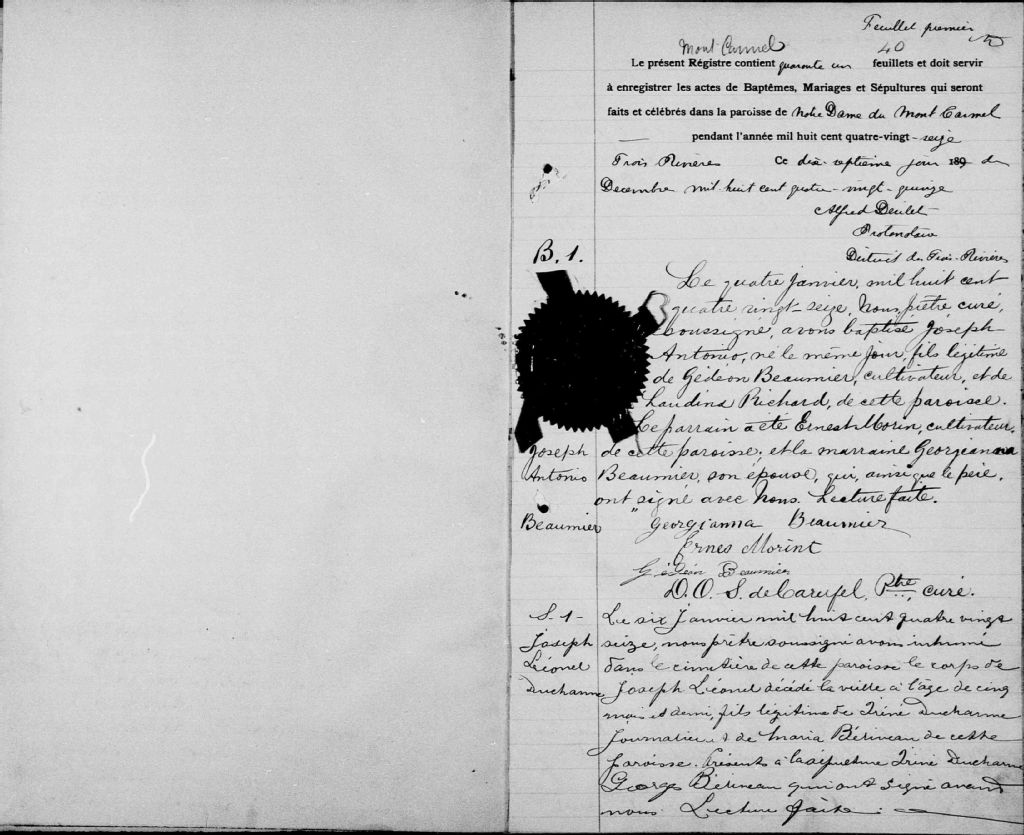 Feuillet premier
Mont Carmel
40
Le présent Régistre contient quarante un feuillets et doit servir
à enregistrer les actes de Baptêmes, Mariages et Sépultures qui seront
faits et célébrés dans la paroisse de Notre Dame du Mont Carmel
pendant l'année mil huit cent quatre-vingt-seize
Trois Rivières Ce dix septieme jour 189 de
Decembre mil huit cent quatre-vingt-quinze
Alfred Desilet
Protonotaire
District des Trois-Rivières
B. 1.
Le quatre janvier, mil huit cent
quatre vingt-seize, Nous, prêtre curé,
soussigné, avons baptisé Joseph
Antonio, né le même jour, fils légitime
de Gédeon Beaumier, cultivateur, et de
Laudina Richard, de cette paroisse.
Le parrain a été Ernest Morin, cultivateur,
Joseph de cette paroisse; et la marraine Georgianna
Antonio Beaumier, son épouse, qui, ainsi que le père,
ont signé avec Nous. Lecture faite.
Beaumier Georgianna Beaumier
Ernes Morint
Gédéon Beaumier
D. O. S. de Carufel, Ptre, curé.
S. 1 - Le six Janvier mil huit cent quatre vingt
Joseph seize, nous prêtre soussigné avons inhumé
Léonel dans le cimetière de cette paroisse le corps de
Ducharme Joseph Léonel décédé la veille à l'âge de cinq
mois et demi, fils légitime de Iréné Ducharme
Journalier et de Maria Bériveau de cette
paroisse. Présents à la sépulture Iréné Ducharme
Georges Bériveau qui ont signé avec
nous. Lecture faite.